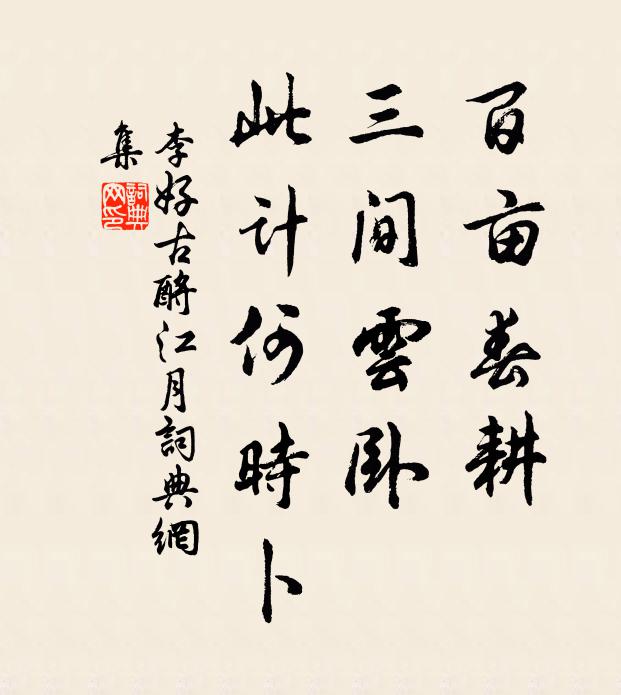 百亩春耕
三间雲卧
此计何時卜
李好古酹江月詞典網
集
詞典网印